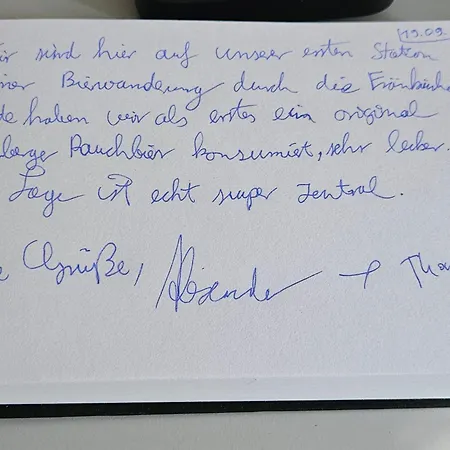 19.09.
ir sind hier auf unserer ersten Station
ner Bierwanderung durch die Fränkische
de haben wir als erstes ein original
berge Rauchbier konsumiert, sehr lecker.
Lage ist echt super zentral.
e Grüße, Alexander + Tho